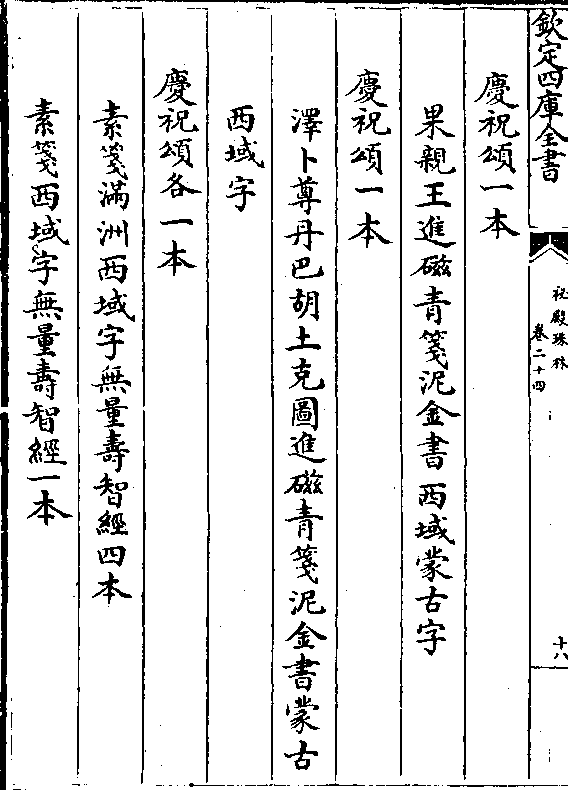 欽定四庫全書
祕殿珠林
卷二十四
十八
慶祝頌一本
果親王進磁青箋泥金書西域蒙古字
慶祝頌一本
澤卜尊丹巴胡土克圖進磁青箋泥金書蒙古
西域字
慶祝頌各一本
素箋滿洲西域字無量壽智經四本
素箋西域字無量壽智經一本